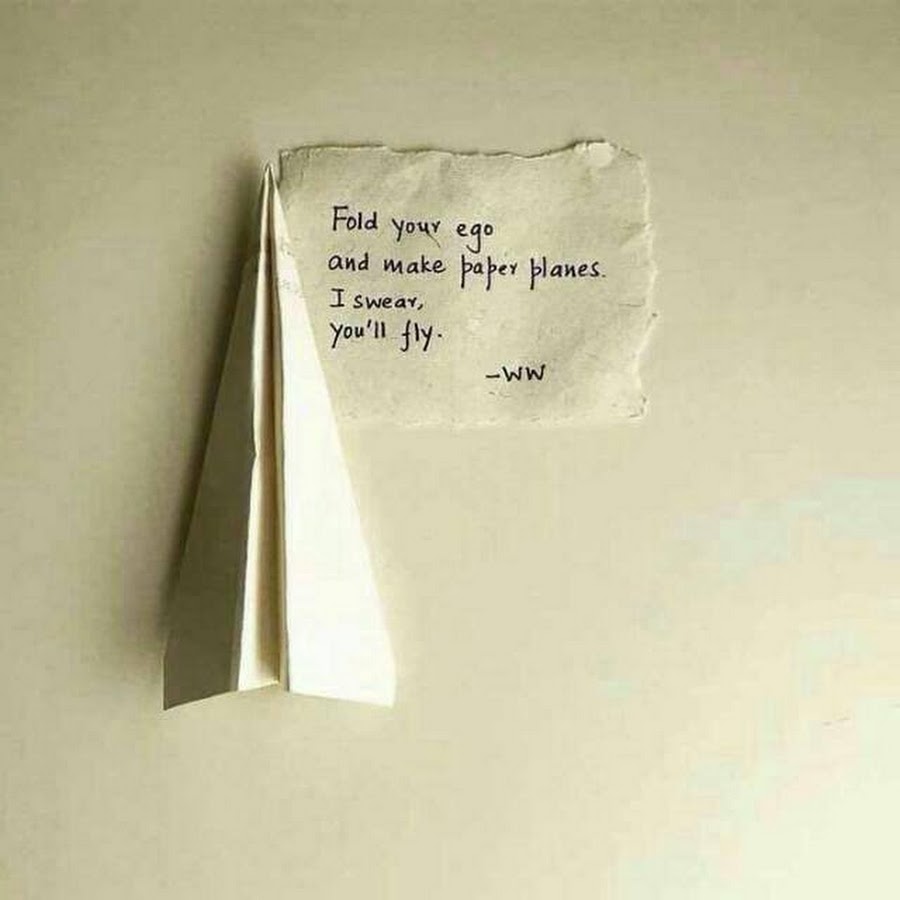 Fold your ego
and make paper planes.
I swear,
you'll fly.
-WW